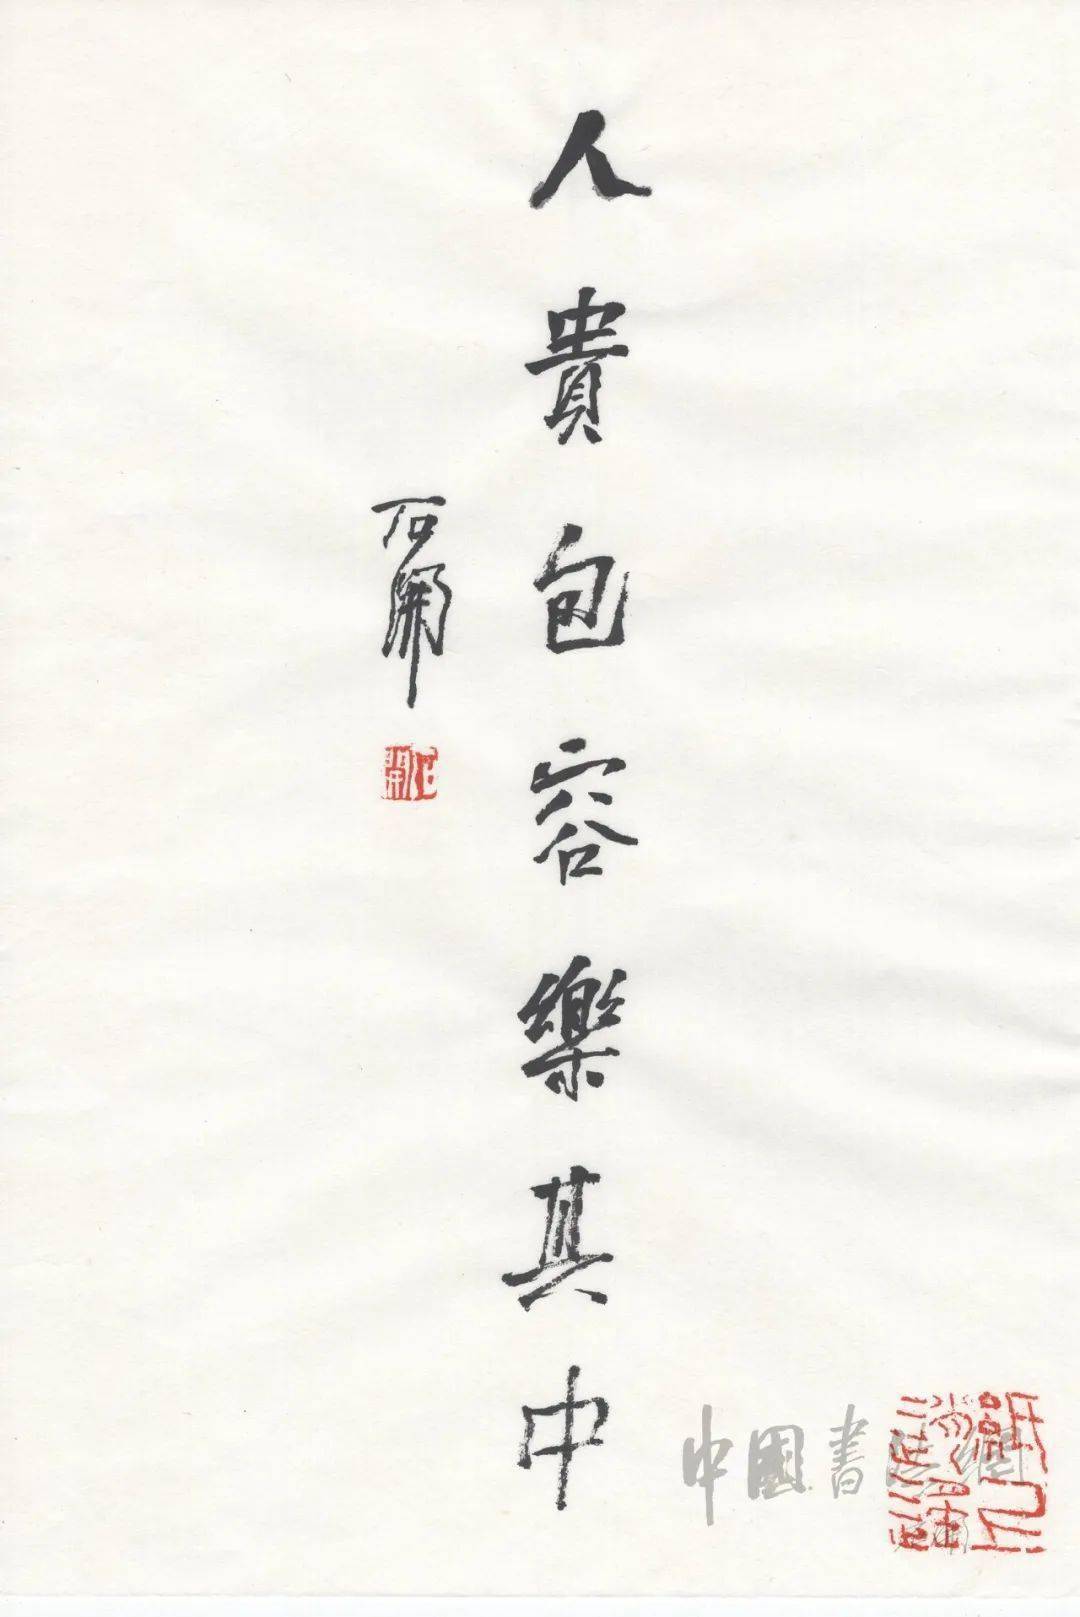 人貴包容樂其中
石開
石開
中國書法網